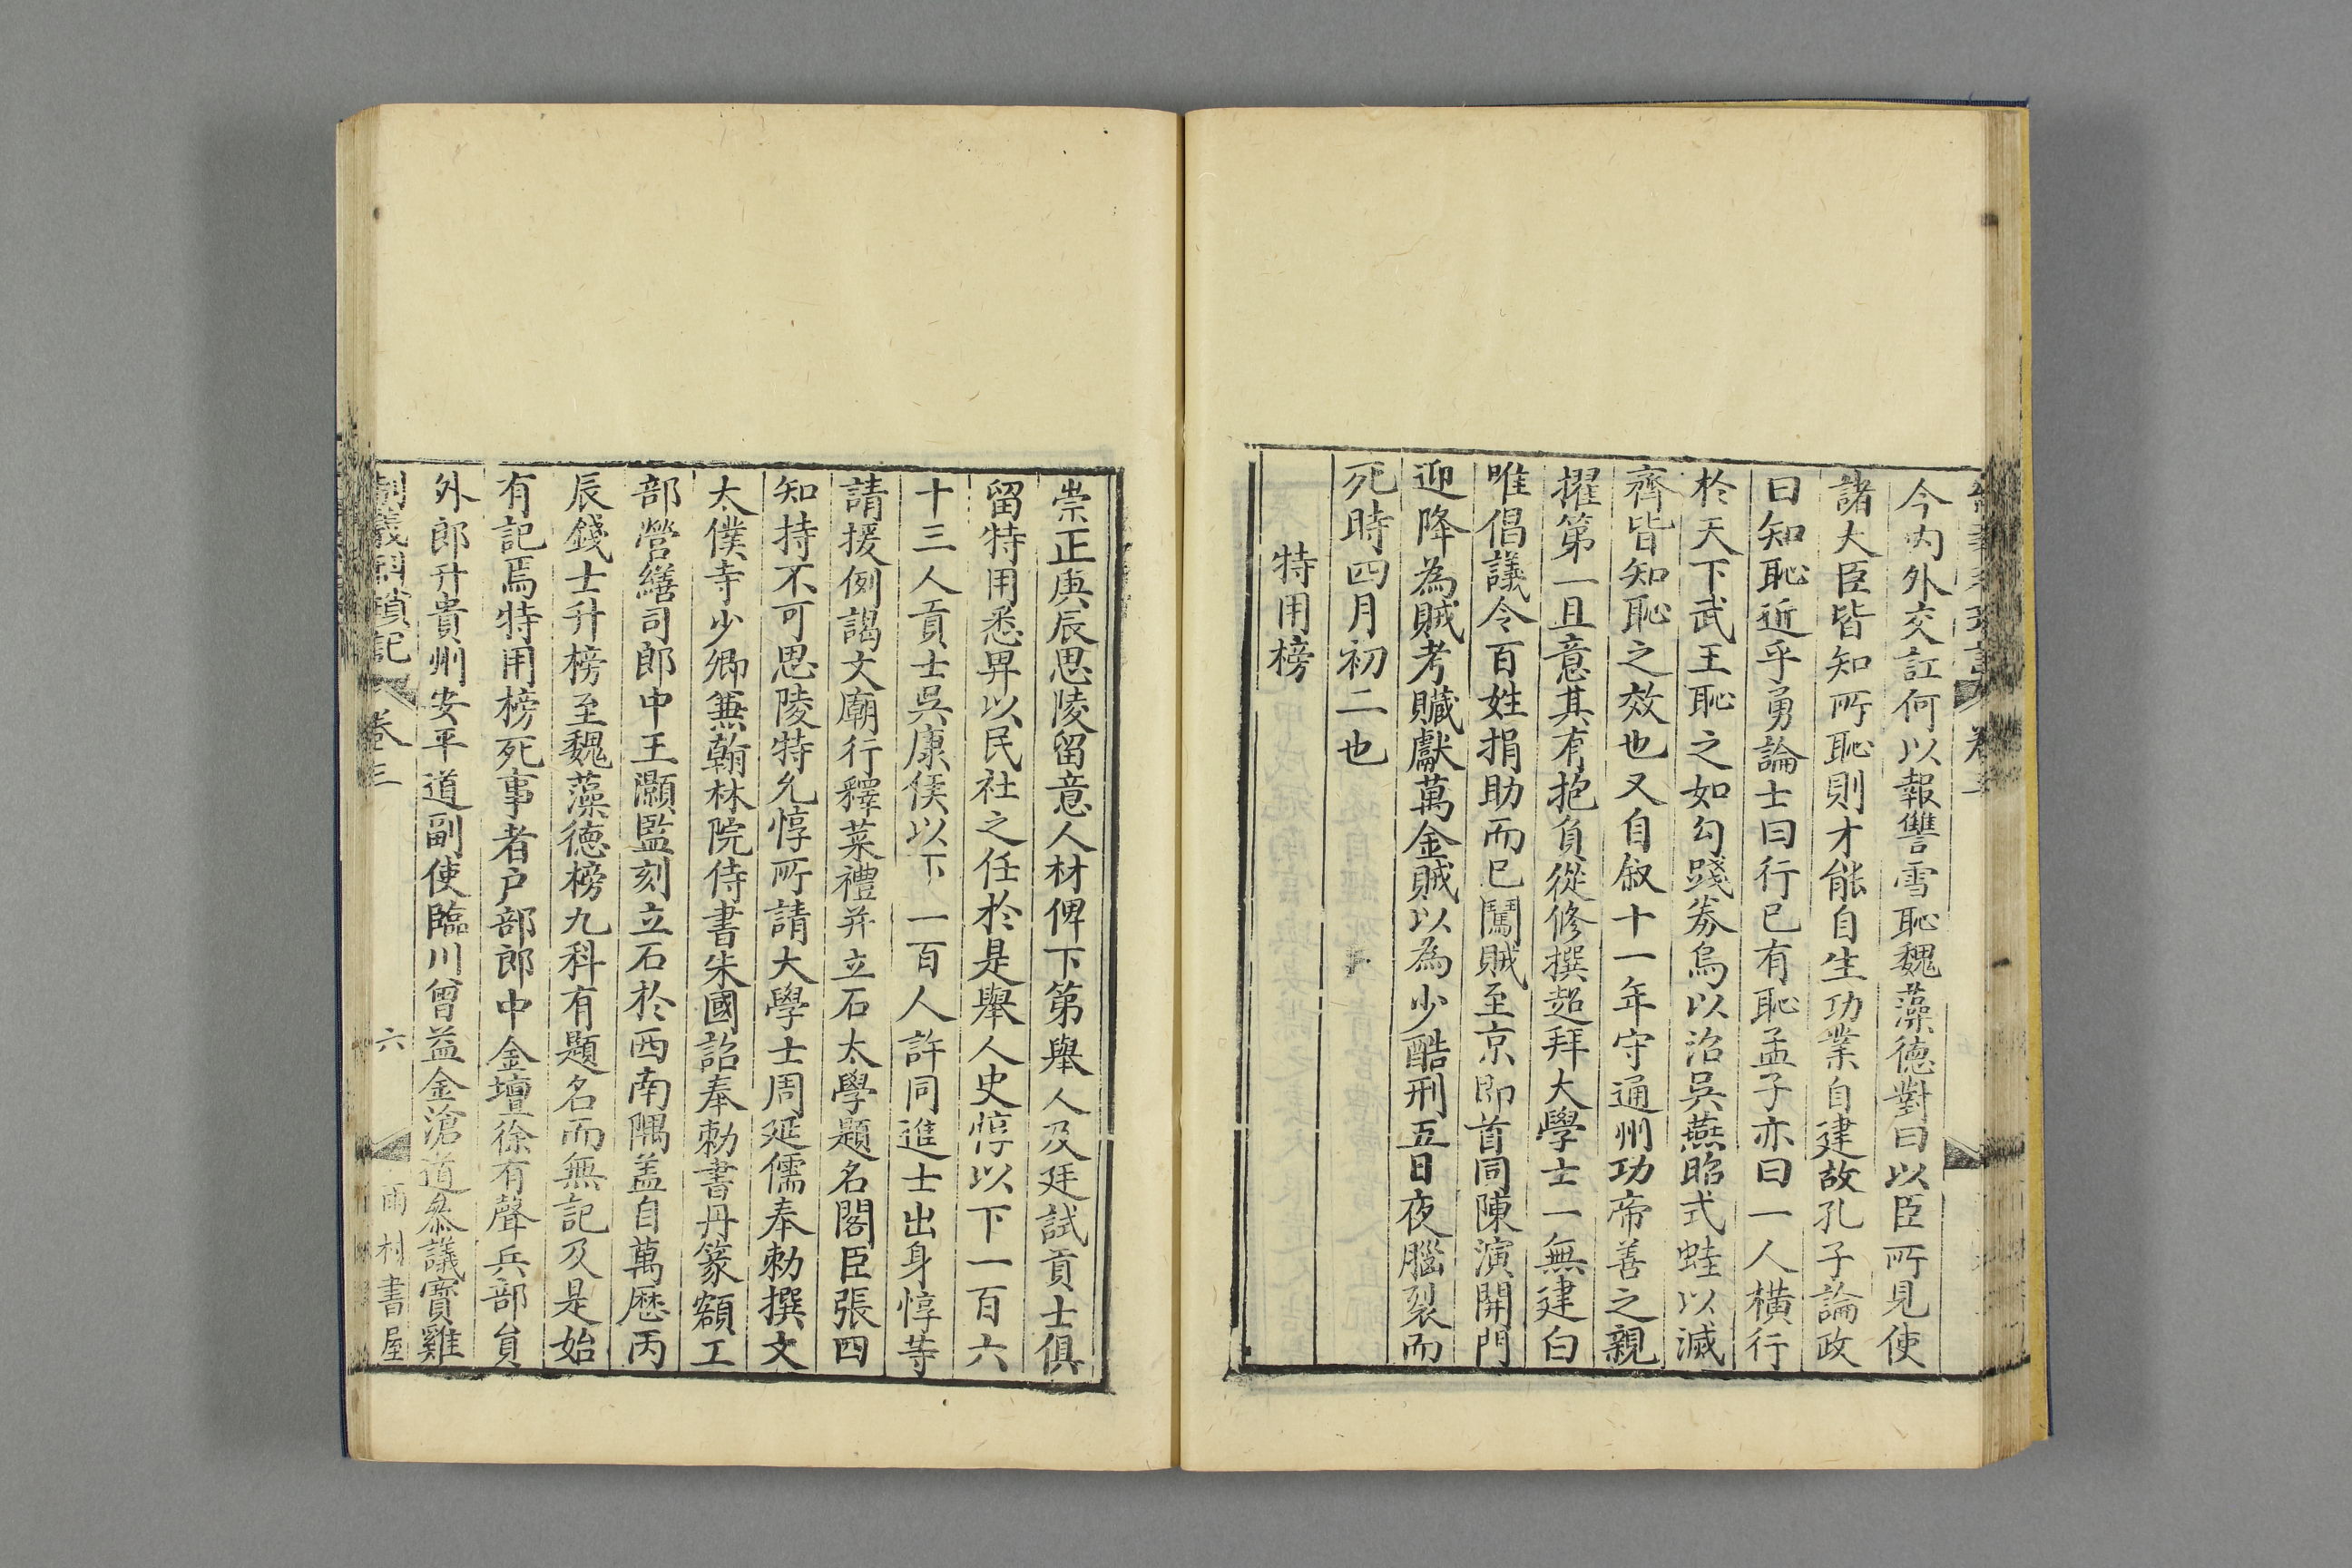 今內外交訌何以報讐雪恥魏藻德對曰以臣所見使
諸大臣皆知所恥則才能自生功業自建故孔子論政
曰知恥近乎勇論士曰行已有恥孟子亦曰一人橫行
於天下武王恥之如勾踐劵烏以沼吳燕昭式蛙以滅
齊皆知恥之效也又自叙十一年守通州功帝善之親
擢第一且意其有抱負從修撰超拜大學士一無建白
唯倡議令百姓捐助而已闖賊至京即首同陳演開門
迎降為賊考贓獻萬金賊以為少酷刑五日夜腦裂而
死時四月初二也
特用榜
崇正庚辰思陵留意人材俾下第舉人及廷試貢士俱
留特用悉畀以民社之任於是舉人史惇以下一百六
十三人貢士吳康侯以下一百人許同進士出身惇等
請援例謁文廟行釋菜禮并立石太學題名閣臣張四
知持不可思陵特允惇所請大學士周延儒奉勅撰文
太僕寺少卿兼翰林院侍書朱國詔奉勅書丹篆額工
部營繕司郎中王灝監刻立石於西南隅盖自萬歷丙
辰錢士升榜至魏藻德榜九科有題名而無記及是始
有記焉特用榜死事者户部郎中金壇徐有聲兵部員
外郎升貴州安平道副使臨川曾益金滄道叅議寶雞
制義科瑣記 卷三 六 書屋